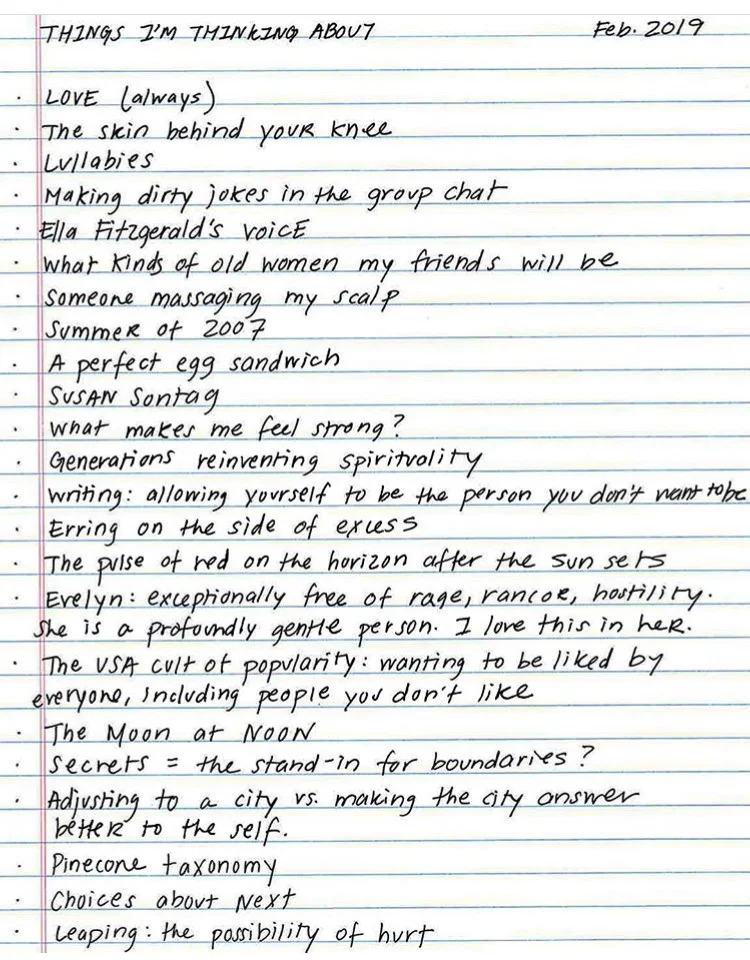 THINGS I'M THINKING ABOUT Feb. 2019
· LOVE (always)
· The skin behind your knee
· Lullabies
· Making dirty jokes in the group chat
· Ella Fitzgerald's voice
· What kinds of old women my friends will be
· Someone massaging my scalp
· Summer of 2007
· A perfect egg sandwich
· Susan Sontag
· What makes me feel strong?
· Generations reinventing spirituality
· Writing: allowing yourself to be the person you don't want to be
· Erring on the side of excess
· The pulse of red on the horizon after the sun sets
· Evelyn: exceptionally free of rage, rancor, hostility.
She is a profoundly gentle person. I love this in her.
· The USA cult of popularity: wanting to be liked by
everyone, including people you don't like
· The Moon at Noon
· Secrets = the stand-in for boundaries?
· Adjusting to a city vs. making the city answer
better to the self.
· Pinecone taxonomy
· Choices about Next
· Leaping: the possibility of hurt